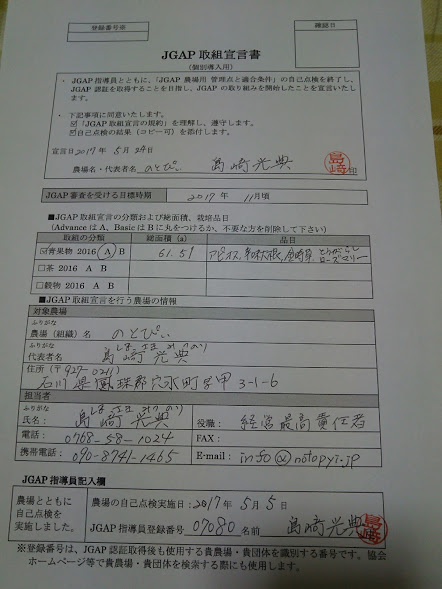 登録番号※
確認日
JGAP 取組宣言書
(個別導入用)
・ JGAP 指導員とともに、「JGAP 農場用 管理点と適合条件」の自己点検を終了し、
JGAP 認証を取得することを目指し、JGAP の取り組みを開始したことを宣言いたし
ます。
・ 下記事項に同意いたします。
☑「JGAP 取組宣言の規約」を理解し、遵守します。
☑自己点検の結果（コピー可）を添付します。
宣言日2017年 5月29日
農場名・代表者名 のとぴい 島崎光典 印
JGAP 審査を受ける目標時期 2017年 11月頃
■JGAP 取組宣言の分類および総面積、栽培品目
(Advance は A、Basic は B に丸をつけるか、不要な方を削除して下さい)
取組の分類 総面積 (a) 品目
☑青果物 2016 A B 61.51 アピオス, 金時草, とうがらし
ローズマリー
□茶 2016 A B
□穀物 2016 A B
■JGAP 取組宣言を行う農場の情報
対象農場
ふりがな
農場（組織）名 のとぴい
ふりがな しまさき みつのり
代表者名 島崎光典
住所（〒927-0211
石川県鳳珠郡穴水町字甲3-1-6
担当者
ふりがな しまさき みつのり
氏名： 島崎光典 役職： 経営最高責任者
電話： 0768-58-1024 FAX：
携帯電話： 090-8741-1465 E-mail： info@notopyi.jp
JGAP 指導員記入欄
農場とともに
自己点検を
実施しました。
農場の自己点検実施日：2017年 5月 5日
JGAP 指導員登録番号 07080 名前 島崎光典
※登録番号は、JGAP 認証取得後も使用する貴農場・貴団体を識別する番号です。協会
ホームページ等で貴農場・貴団体を検索する際にも使用します。